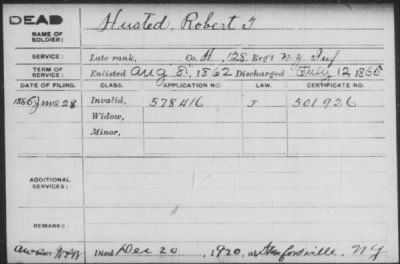 DEAD
NAME OF SOLDIER: Husted, Robert T
SERVICE: Late rank, Co. H, 128 Reg't N.Y. Inf
TERM OF SERVICE: Enlisted Aug 8, 1862 Discharged July 12 1865
DATE OF FILING. CLASS. APPLICATION NO. LAW. CERTIFICATE NO.
1886 June 28 Invalid, 578416 J 301926
Widow,
Minor,
ADDITIONAL SERVICES:
REMARKS:
Died Dec 20, 1920, at Stanfordville, NY